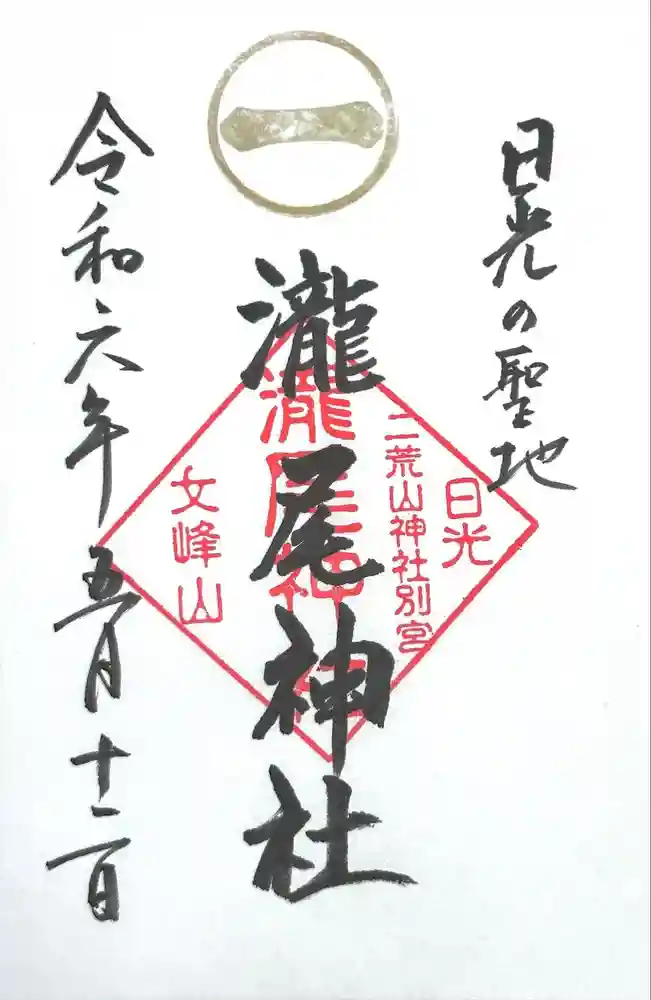 一
日光の聖地
瀧尾神社
令和六年五月十二日
日光
二荒山神社別宮
瀧尾神社
女峰山